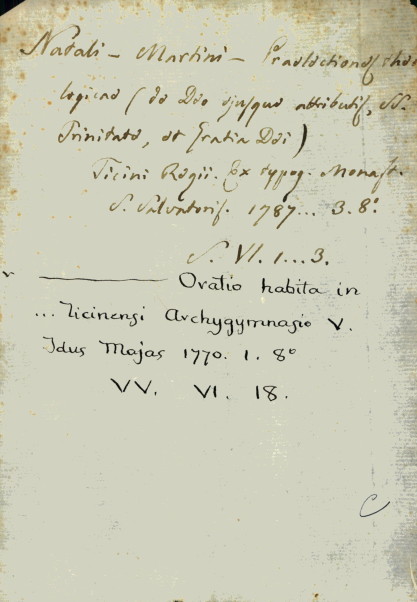 Natali - Martini - Praelectiones theo
logicae (de Deo ejusque attributis, SS.
Trinitate, et Gratia Dei)
Ticini Regii. Ex typog. Monast.
S. Salvatoris. 1787... 3. 8°.
S. VI. 1...3.
——— Oratio habita in
... Ticinensi Archygymnasio V.
Idus Majas 1770. 1. 8°
VV. VI. 18.
C